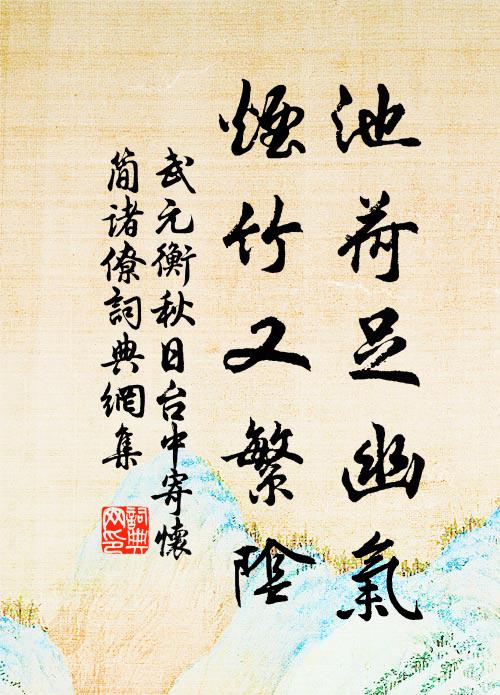 池荷足幽氣
煙竹又繁陰
武元衡秋日台中寄懷
简诸僚詞典網集
詞典網印